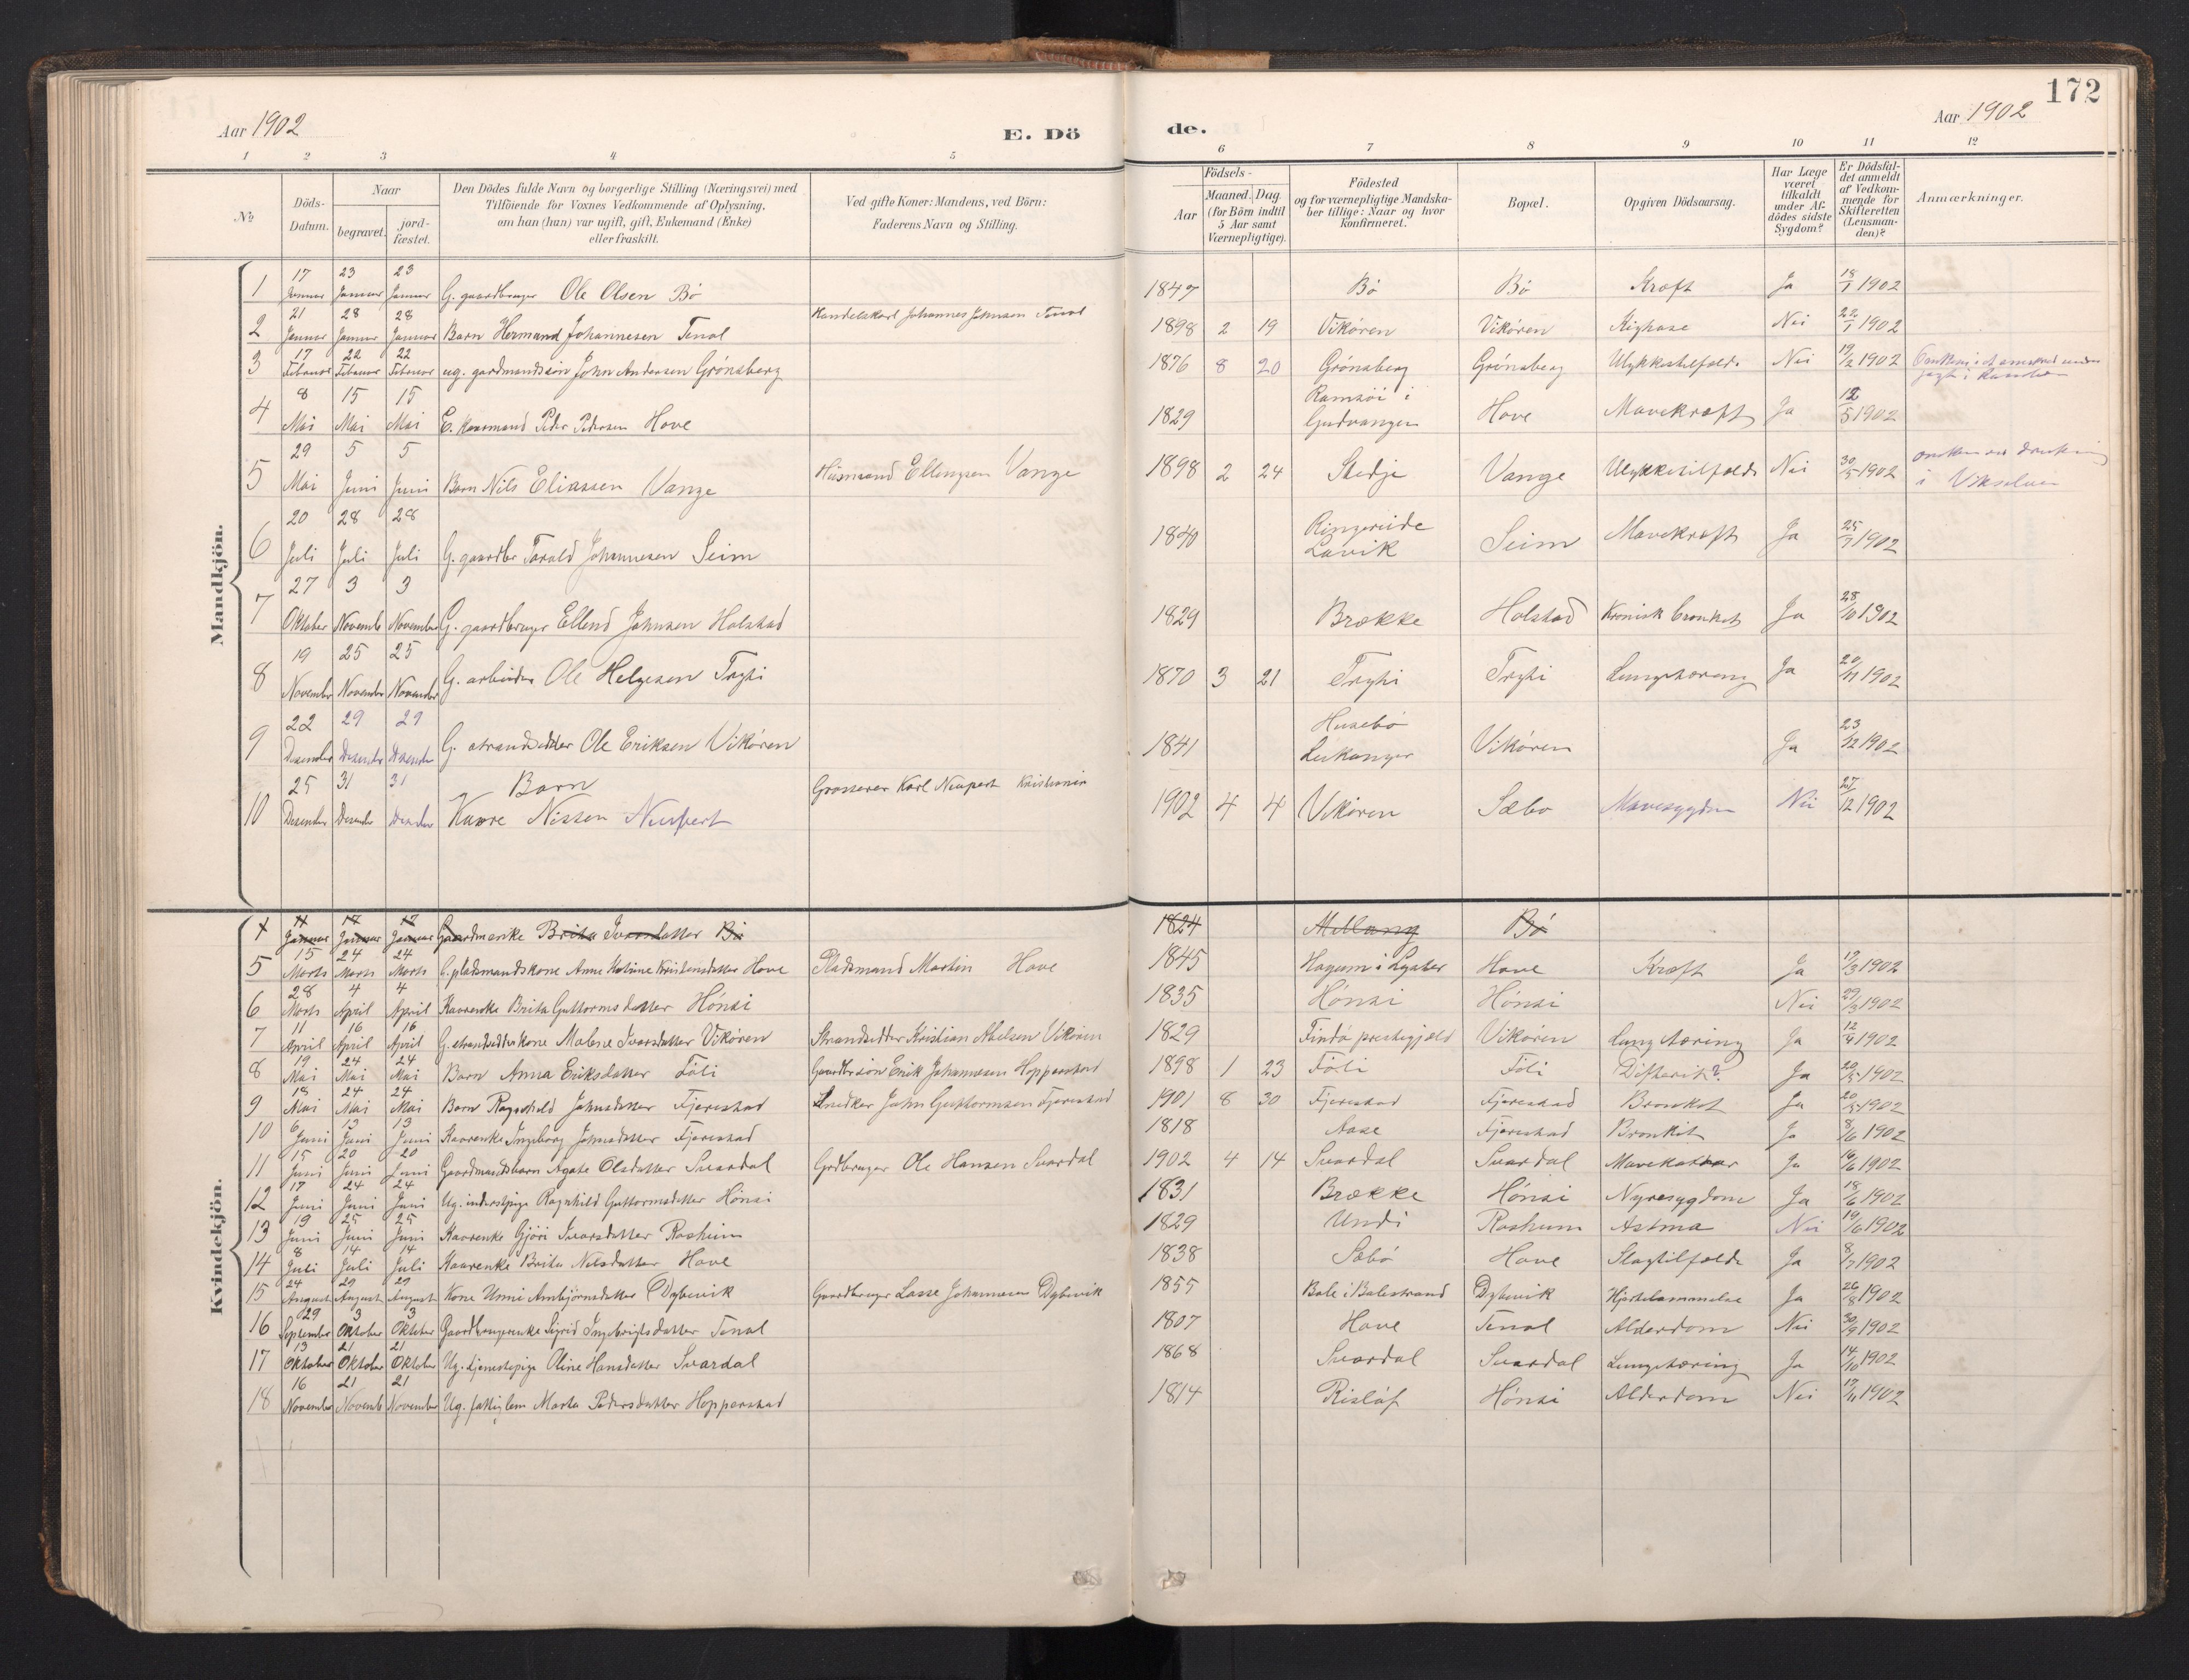 172
Aar 1902
E. Dö
de.
Aar 1902
1 2 3 4 5 6 7 8 9 10 11 12
№
Döds-Datum.
Naar
begravet.
jord-fæstet.
Den Dödes fulde Navn og borgerlige Stilling (Næringsvei) med
Tilföiende for Voxnes Vedkommende af Oplysning,
om han (hun) var ugift, gift, Enkemand (Enke)
eller fraskilt.
Ved gifte Koner: Mandens, ved Börn:
Faderens Navn og Stilling.
Födsels-
Aar
Maaned. Dag.
(for Börn indtil
5 Aar samt
Værnepligtige).
Födested
og for værnepligtige Mandska-
ber tillige: Naar og hvor
konfirmeret.
Bopæl.
Opgiven Dödsaarsag.
Har Læge
været
tilkaldt
under Af-
dödes sidste
Sygdom?
Er Dödsfal-
det anmeldt
af Vedkom-
mende for
Skifteretten
(Lensman-
den)?
Anmærkninger.
Mandkjön.
1 17 Januar 23 Januar 23 Januar G. gaardbruger Ole Olsen Bö 1847 Bö Bö Kræft Ja 18/1 1902
2 21 Januar 28 Januar 28 Januar Barn Hermund Johannesen Tenol Handelskarl Johannes Johnsen Tenol 1898 2 19 Vikören Vikören Kighoste Nei 22/1 1902
3 17 Februar 22 Februar 22 Februar ug. gardmandssön John Andersen Grönsberg 1876 8 20 Grönsberg Grönsberg Ulykkestilfælde Nei 19/2 1902
4 8 Mai 15 Mai 15 Mai E. Peder Pedersen Hove 1829 Ramsöi i Gudvangen Hove Mavekræft Ja 12/5 1902
5 29 Mai 5 Juni 5 Juni Barn Nils Eliassen Vange Husmand Ellingsen Vange 1898 2 24 Stedje Vange Ulykkestilfælde Nei 30/5 1902 omkom ved drukning i Vikselven
6 20 Juli 28 Juli 28 Juli G. gaardbr Torald Johannesen Seim 1840 Ringereide Lavik Seim Mavekræft Ja 25/7 1902
7 27 Oktober 3 Novemb 3 November G. gaardbruger Ellend Johnsen Holstad 1829 Brække Holstad Kronisk bronkit Ja 28/10 1902
8 19 November 25 November 25 November G. arbeider Ole Helgesen Tryti 1870 3 21 Tryti Tryti Lungetæring Ja 20/11 1902
9 22 Desember 29 Desember 29 Desember G. strandsidder Ole Eriksen Vikören 1841 Husebö Leikanger Vikören Ja 23/12 1902
10 25 Desember 31 Desember 31 Desember Barn Kaare Nissen Neupert Grosserer Karl Neupert Kristiania 1902 4 4 Vikören Sæbo Mavesygdom Nei 27/12 1902
Kvindekjön.
Januar Januar Januar Gaardmenke Brita Ivarsdatter Bö 1824 Mellang Bö
5 15 Marts 24 Marts 24 Marts G. pladsmandskone Anne Katrine Kristensdatter Hove Pladsmand Martin Hove 1845 Hagum i Lyster Hove Kræft Ja 17/3 1902
6 28 Marts 4 April 4 April Kaarenke Brita Guttormsdatter Hönsi 1835 Hönsi Hönsi Nei 29/3 1902
7 11 April 16 April 16 April G. strandsidderkone Malene Ivarsdatter Vikören Strandsidder Kristian Abelsen Vikören 1829 Findö prestegjæld Vikören Lungetæring Ja 12/4 1902
8 19 Mai 24 Mai 24 Mai Barn Anna Eriksdatter Föli Gaardbrsön Erik Johannesen Hopperstad 1898 1 23 Föli Föli Difterit? Ja 20/5 1902
9 18 Mai 24 Mai 24 Mai Barn Ragnhild Johnsdatter Fjerestad Snedker John Guttormsen Fjerestad 1901 8 30 Fjerestad Fjerestad Bronkit Ja 20/5 1902
10 6 Juni 13 Juni 13 Juni Kaarenke Ingeborg Johnsdatter Fjerestad 1818 Aase Fjerestad Bronkit Ja 8/6 1902
11 15 Juni 20 Juni 20 Juni Gaardmandsbarn Agate Olsdatter Svardal Grdbruger Ole Hansen Svardal 1902 4 14 Svardal Svardal Mavekatar Ja 16/6 1902
12 17 Juni 24 Juni 24 Juni Ug. inderstpige Ragnhild Guttormsdatter Hönsi 1831 Brække Hönsi Nyresygdom Ja 18/6 1902
13 19 Juni 25 Juni 25 Juni Kaarenke Gjöri Ivarsdatter Roshum 1829 Undi Roshum Astma Nei 19/6 1902
14 8 Juli 14 Juli 14 Juli Kaarenke Brita Nilsdatter Hove 1838 Sæbö Hove Slagtilfælde Ja 8/7 1902
15 24 August 29 August 29 August Kone Unni Ambjörnsdatter Dybevik Gaardbruger Lasse Johannesen Dybevik 1855 Bale i Balestrand Dybevik Hjertelammelse Ja 26/8 1902
16 29 September 3 Oktober 3 Oktober Gaardbrugerenke Sigrid Ingebrigtsdatter Tenol 1807 Hove Tenol Alderdom Nei 30/9 1902
17 13 Oktober 21 Oktober 21 Oktober Ug. tjenestepige Oline Hansdatter Svardal 1868 Svardal Svardal Lungetæring Ja 14/10 1902
18 16 November 21 Novemb 21 November Ug. fattiglem Marta Pedersdatter Hopperstad 1814 Rislöf Hönsi Alderdom Nei 17/11 1902